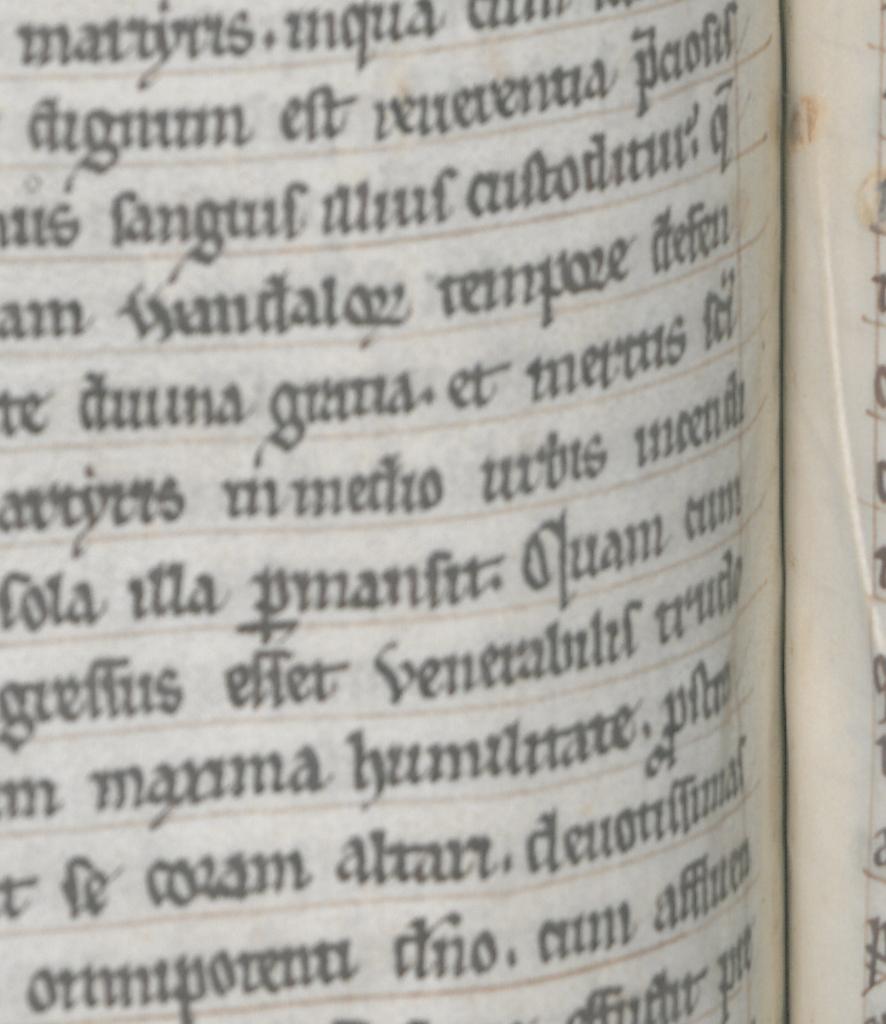 martyris. inqua cum
dignum est reuerentia p̄ciosis
sanguis illius custoditur. q̄
am Vuandaloꝝ tempore defen
te diuina gratia. et meritis sc̄i
artyris in medio urbis incendi
sola illa ꝑmansit. Quam cum
gressus esset Venerabilis trudo
m maxima humilitate. pstra
t se coram altari. deuotissimas
omnipotenti dño. cum affluen
effudit pre